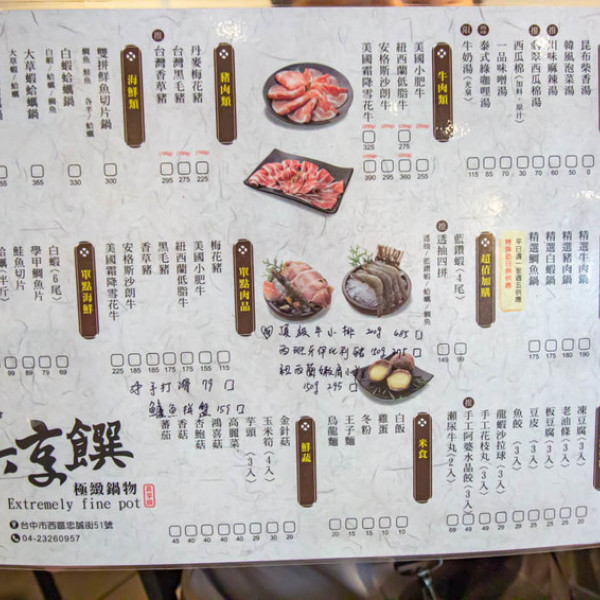 昆布柴香湯
韓風泡菜湯 0
推 川味麻辣湯 50
推 翡翠西瓜棉湯 50
西瓜棉(加料/原汁) 60
一品味噌湯 70
素 泰式綠咖哩湯 65
限 牛奶湯(火鍋) 115
牛肉類
美國小肥牛 255
紐西蘭低脂牛 275
安格斯沙朗牛 295
美國霜降雪花牛 325 390
豬肉類
丹麥梅花豬 225
台灣黑毛豬 275
推 台灣香草豬 295
海鮮類
雙拼鮮魚切片鍋 300
鯛魚 鮭魚 各半/蛤蠣
白蝦蛤蠣鍋 330
白蝦/蛤蠣/鯛魚
大草蝦蛤蠣鍋 365
大草蝦/蛤蠣
精選牛肉鍋 190
精選豬肉鍋 175
精選白蝦鍋 175
精選鯛魚鍋 175
平日週一至週五供應
超值加購
藍鑽蝦(4尾) 99
推 透抽四拼 149
透抽/藍鑽蝦/蛤蠣/鯛魚
單點肉品
梅花豬 115
美國小肥牛 115
紐西蘭低脂牛 135
黑毛豬 155
香草豬 185
安格斯沙朗牛 185
美國霜降雪花牛 225
單點海鮮
白蝦(6尾) 69
學甲鯛魚片 69
鮭魚切片 79
蛤蠣(半斤) 89
99
頂級牛小排 200g 685
西班牙伊比利豬 150g 295
紐西蘭嫩肩小 150g 295
手打滑 79
拼盤 159
凍豆腐(3入) 20
老油條(3入) 20
板豆腐(3入) 20
豆皮(3入)
魚餃(3入)
龍蝦沙拉球(3入)
手工花枝丸(3入)
推 手工阿婆水晶餃(3入) 49
瀨尿牛丸(2入) 69
米食
白飯 10
雞蛋 10
冬粉 15
王子麵 15
烏龍麵 20
鮮蔬
金針菇 20
玉米筍(4入) 20
芋頭(3入) 30
高麗菜 30
鴻喜菇 40
杏鮑菇 40
香菇 40
蕃茄 45
享饌
極緻鍋物
Extremely fine pot
台中市西區忠誠街51號
04-23260957